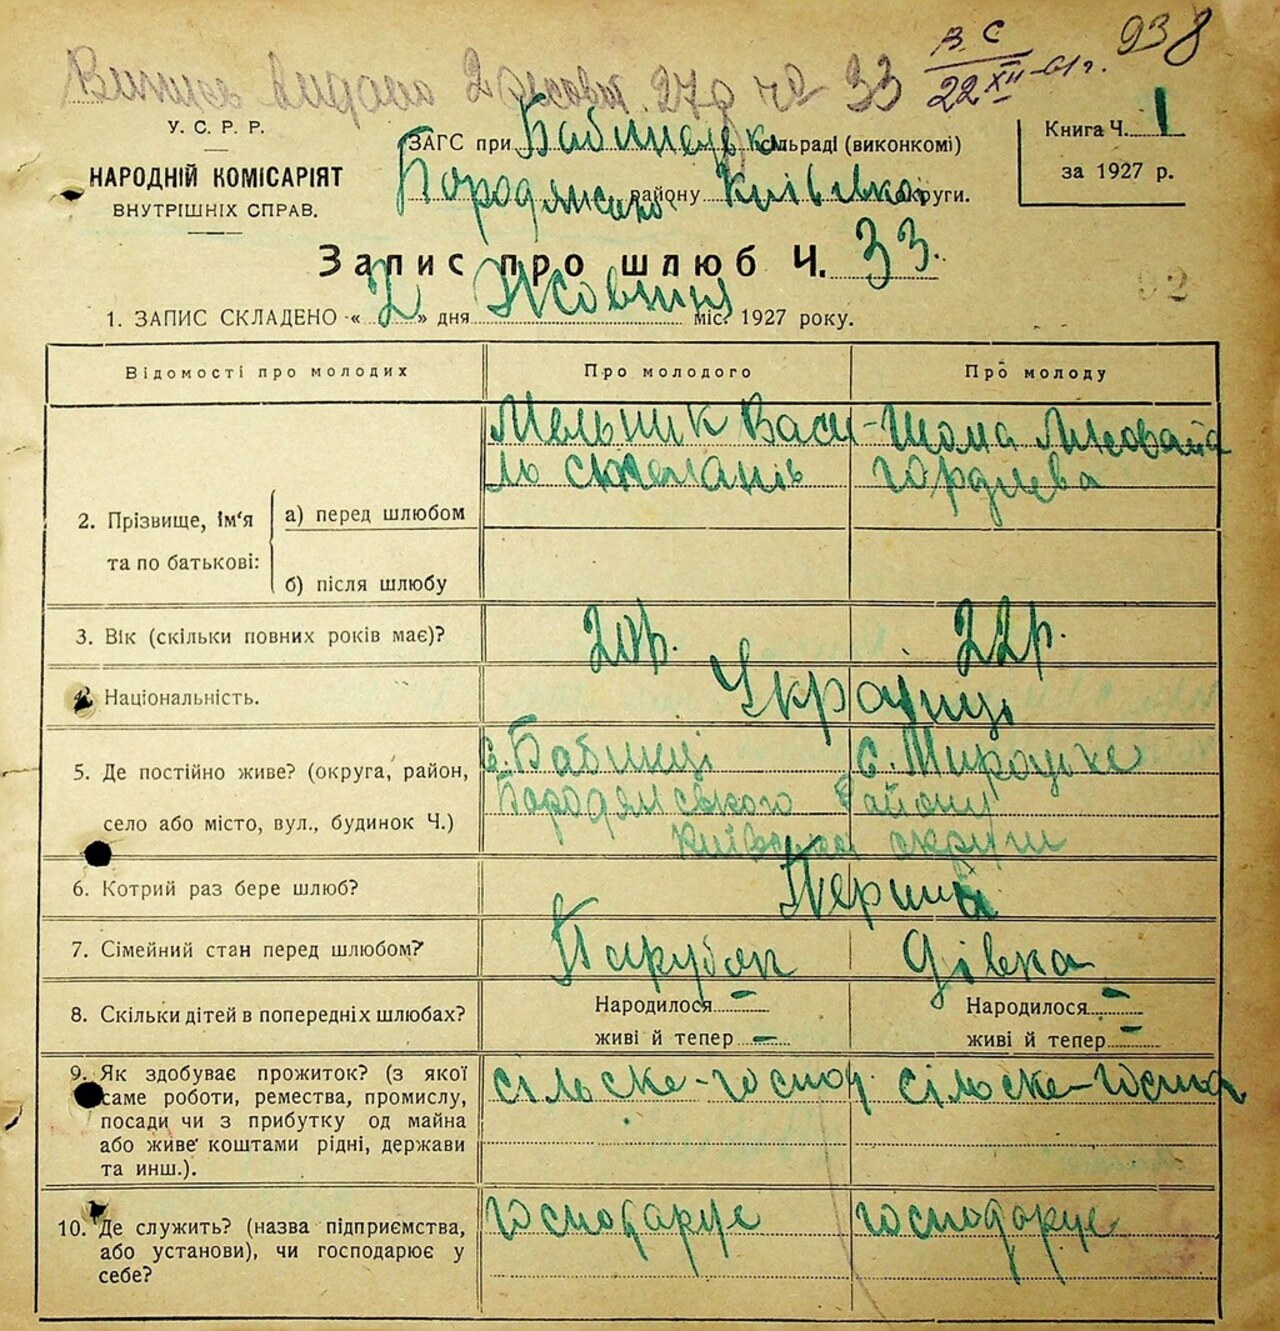 Випись видано 2 жовтня 27 р ч 33
В. С
22 XII-61 г.
938
У. С. Р. Р.
НАРОДНІЙ КОМІСАРІЯТ
ВНУТРІШНІХ СПРАВ.
ЗАГС при Бабинецька сільраді (виконкомі)
Бородянсько району Київська округи.
Книга Ч. 1
за 1927 р.
Запис про шлюб Ч. 33.
92
1. ЗАПИС СКЛАДЕНО «2» дня Жовтня міс. 1927 року.
Відомості про молодих Про молодого Про молоду
Мельник Васи- Шома
ль гордієва
2. Прізвище, ім'я та по батькові:
а) перед шлюбом
б) після шлюбу
3. Вік (скільки повних років має)? 20р. 22р.
4. Національність. Українці
5. Де постійно живе? (округа, район, с. Бабинці с. Мироцьке
село або місто, вул., будинок Ч.) Бородянського району
Київська округи
6. Котрий раз бере шлюб? Перший
7. Сімейний стан перед шлюбом? Парубок дівка
8. Скільки дітей в попередніх шлюбах? Народилося – Народилося –
живі й тепер – живі й тепер –
9. Як здобуває прожиток? (з якої сільске-господ. сільске-господ
саме роботи, ремества, промислу,
посади чи з прибутку од майна
або живе коштами рідні, держави
та инш.).
10. Де служить? (назва підприємства, господарує господарує
або установи), чи господарює у
себе?